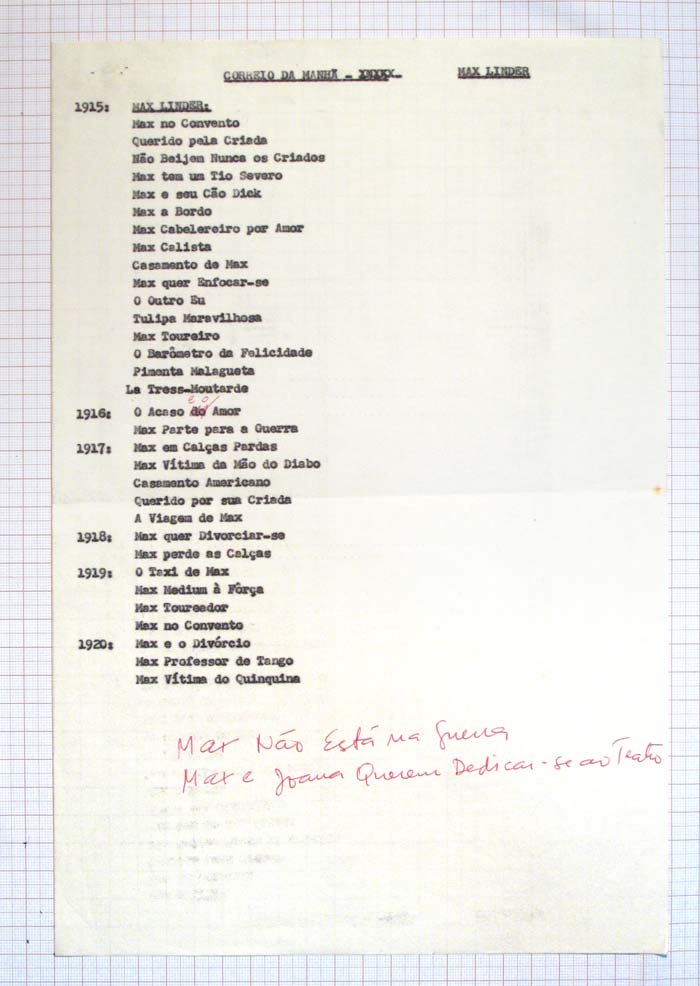 CORREIO DA MANHÃ - XXXXX- MAX LINDER
1915: MAX LINDER:
Max no Convento
Querido pela Criada
Não Beijem Nunca os Criados
Max tem um Tio Severo
Max e seu Cão Dick
Max a Bordo
Max Cabelereiro por Amor
Max Calista
Casamento de Max
Max quer Enfocar-se
O Outro Eu
Tulipa Maravilhosa
Max Toureiro
O Barômetro da Felicidade
Pimenta Malagueta
La Tress-Moutarde
e o/
1916: O Acaso do Amor
Max Parte para a Guerra
1917: Max em Calças Pardas
Max Vítima da Mão do Diabo
Casamento Americano
Querido por sua Criada
A Viagem de Max
1918: Max quer Divorciar-se
Max perde as Calças
1919: O Taxi de Max
Max Medium à Fôrça
Max Toureador
Max no Convento
1920: Max e o Divórcio
Max Professor de Tango
Max Vítima do Quinquina
Max Não Está na Guerra
Max e Joana Querem Dedicar-se ao Teatro